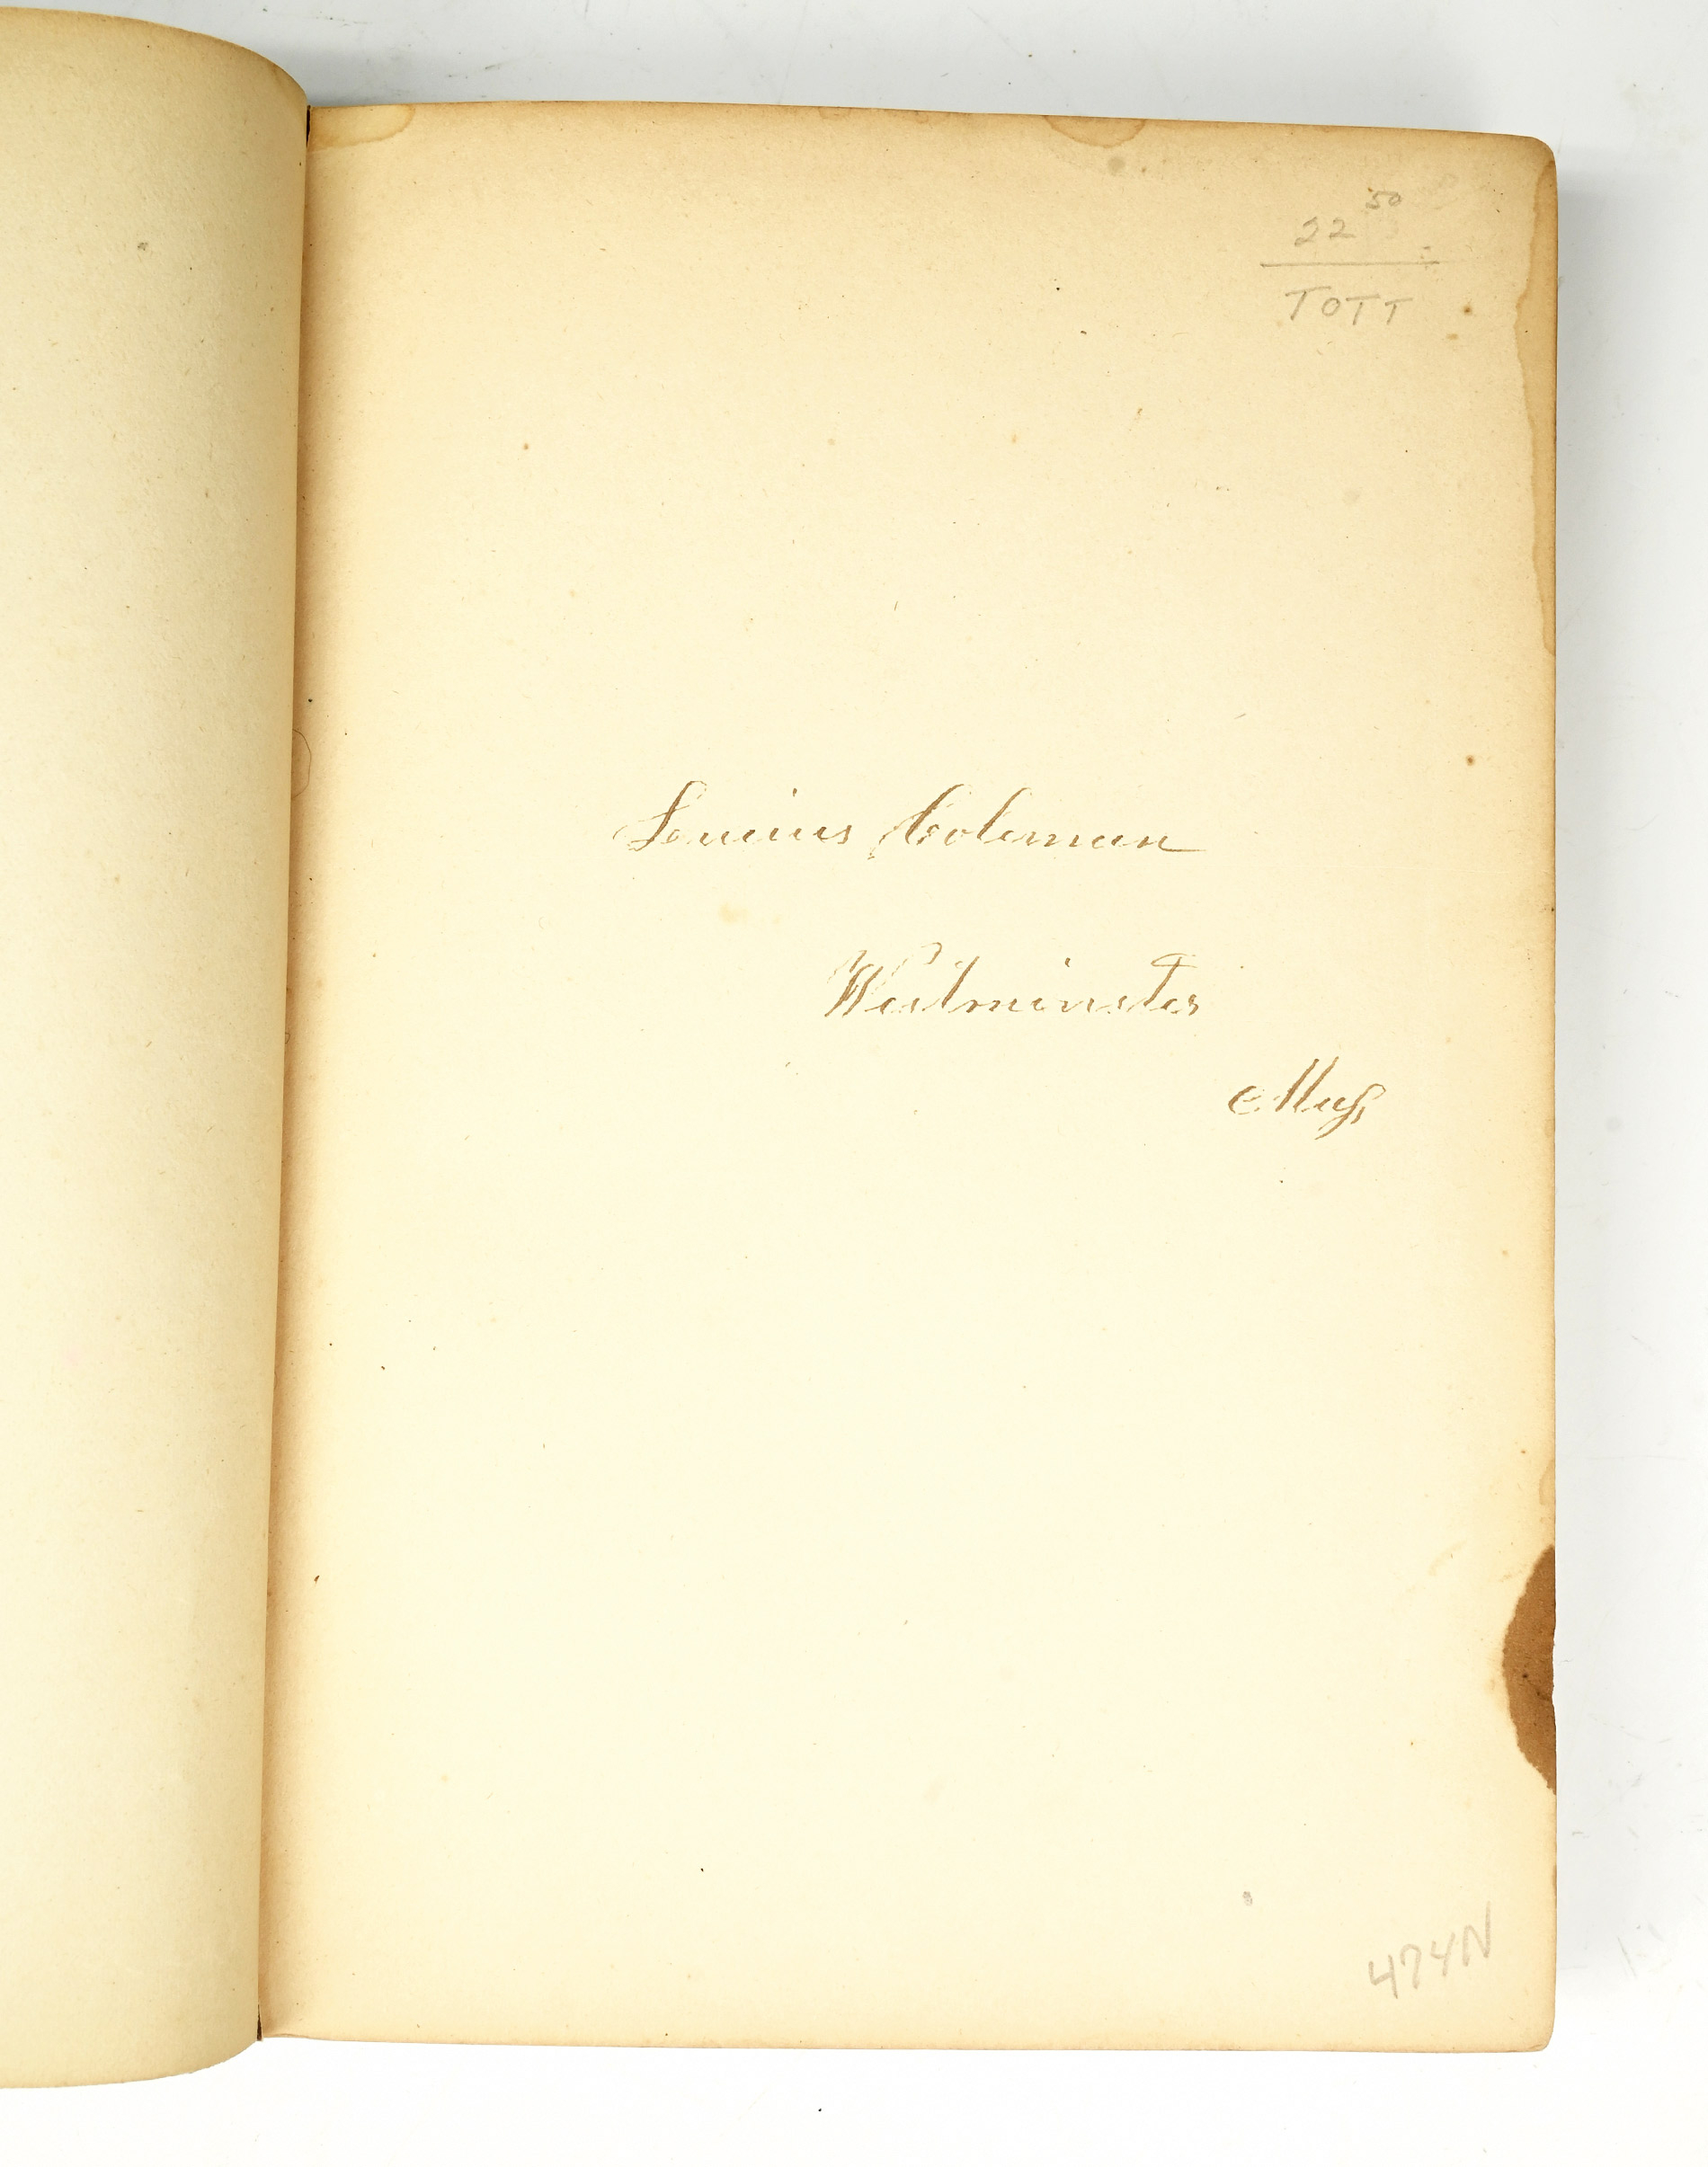 22 50
TOTT
Lucius Coleman
Westminster
Maſs,
474N